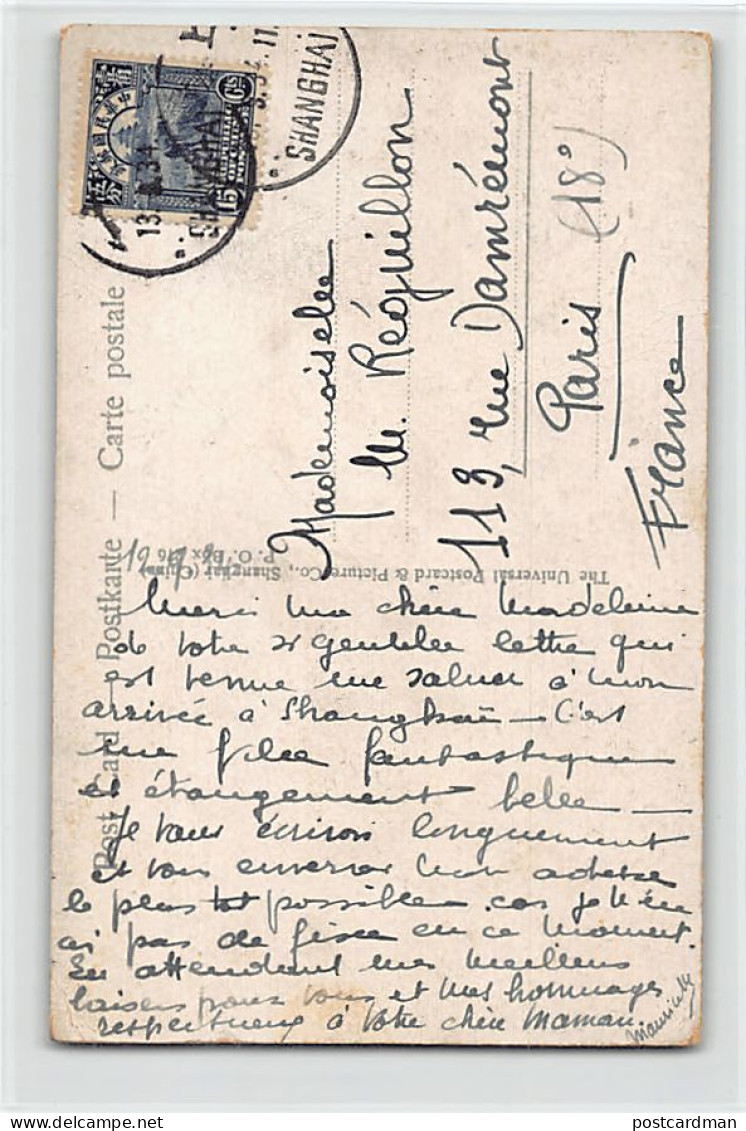 SHANGHAI
SHANGHAI
15
Post Card — Postkarte — Carte postale
The Universal Postcard & Picture Co., Shanghai (China)
P. O. Box
Mademoiselle
M. Réquillon
113, rue Damrémont
Paris (18°)
France
Merci ma chère Madeleine
de votre si gentille lettre qui
est venue me saluer à mon
arrivée à Shanghaï — C'est
une ville fantastique
et étrangement belle —
Je vous écrirai longuement
et vous enverrai mon adresse
le plus tôt possible car je n'en
ai pas de fixe en ce moment.
En attendant mes meilleurs
baisers pour vous et mes hommages
respectueux à votre chère Maman.
postcardman